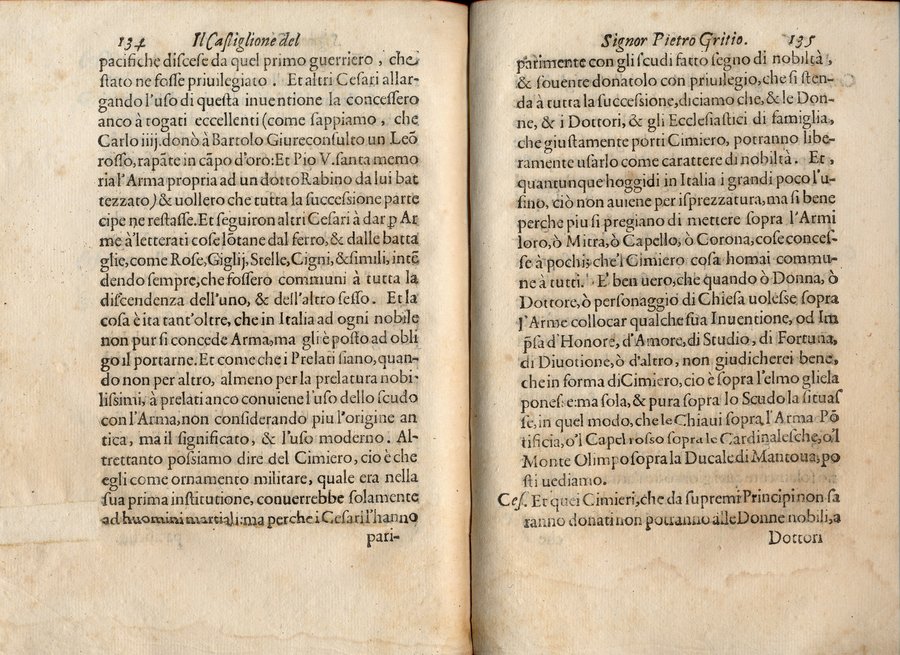 134 Il Castiglione del
pacifiche discese da quel primo guerriero, che
stato ne fosse priuilegiato. Et altri Cesari allar-
gando l'uso di questa inuentione la concessero
anco à togati eccellenti (come sappiamo, che
Carlo iiij. donò à Bartolo Giureconsulto un Leõ
rosso, rapãte in cãpo d'oro: Et Pio V. santa memo
ria l'Arma propria ad un dotto Rabino da lui bat
tezzato) & uollero che tutta la successione parte
cipe ne restasse. Et seguiron altri Cesari à dar ꝑ Ar
me à letterati cose lõtane dal ferro, & dalle batta
glie, come Rose, Giglij, Stelle, Cigni, & simili, intẽ
dendo sempre, che fossero communi à tutta la
discendenza dell'uno, & dell'altro sesso. Et la
cosa è ita tant'oltre, che in Italia ad ogni nobile
non pur si concede Arma, ma gli è posto ad obli
go il portarne. Et come che i Prelati siano, quan-
do non per altro, almeno per la prelatura nobi-
lissimi, à prelati anco conuiene l'uso dello scudo
con l'Arma, non considerando piu l'origine an
tica, ma il significato, & l'uso moderno. Al-
trettanto possiamo dire del Cimiero, cio è che
egli come ornamento militare, quale era nella
sua prima institutione, conuerrebbe solamente
ad huomini martiali: ma perche i Cesari l'hanno
pari-
Signor Pietro Gritio. 135
parimente con gli scudi fatto segno di nobiltà,
& souente donatolo con priuilegio, che si sten-
da à tutta la successione, diciamo che, & le Don-
ne, & i Dottori, & gli Ecclesiastici di famiglia,
che giustamente porti Cimiero, potranno libe-
ramente usarlo come carattere di nobiltà. Et,
quantunque hoggidi in Italia i grandi poco l'u-
sino, ciò non auiene per isprezzatura, ma si bene
perche piu si pregiano di mettere sopra l'Armi
loro, ò Mitra, ò Capello, ò Corona, cose conces-
se à pochi; che'l Cimiero cosa homai commu-
ne à tutti. E ben uero, che quando ò Donna, ò
Dottore, ò personaggio di Chiesa uolesse sopra
l'Arme collocar qualche sua Inuentione, od Im
p̃sa d'Honore, d'Amore, di Studio, di Fortuna,
di Diuotione, ò d'altro, non giudicherei bene,
che in forma di Cimiero, cio è sopra l'elmo gliela
ponesse: ma sola, & pura sopra lo Scudo la situas
se, in quel modo, che le Chiaui sopra l'Arma Põ
tificia, o'l Capel rosso sopra le Cardinalesche, o'l
Monte Olimpo sopra la Ducale di Mantoua, po
sti uediamo.
Ces. Et quei Cimieri, che da supremi Principi non sa
ranno donati non potranno alle Donne nobili, a
Dottori